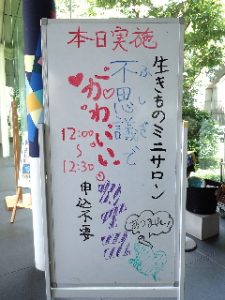 本日実施
生きものミニサロン
不思議で
ふしぎ
かわいい
12:00
~
12:30
申込不要